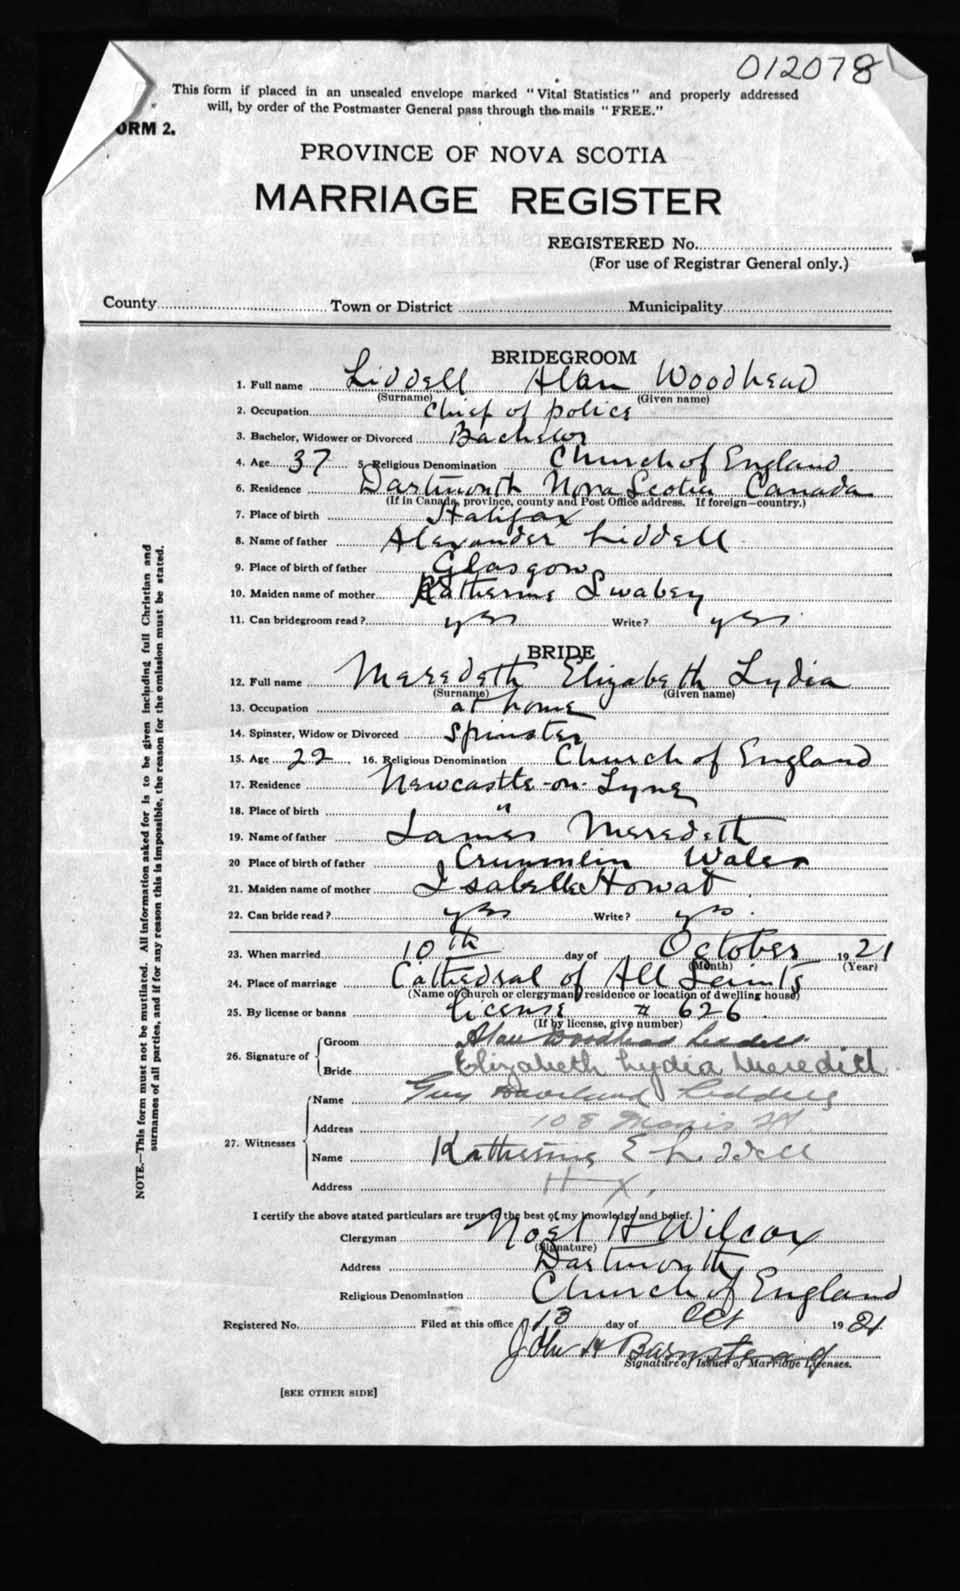 012078
This form if placed in an unsealed envelope marked "Vital Statistics" and properly addressed
will, by order of the Postmaster General pass through the mails "FREE."
ORM 2.
PROVINCE OF NOVA SCOTIA
MARRIAGE REGISTER
REGISTERED No.
(For use of Registrar General only.)
County Town or District Municipality
BRIDEGROOM
1. Full name Liddell Alan Woodhead
(Surname) (Given name)
2. Occupation Chief of police
3. Bachelor, Widower or Divorced Bachelor
4. Age 37 5. Religious Denomination Church of England
6. Residence Dartmouth Nova Scotia Canada
(If in Canada, province, county and Post Office address. If foreign—country.)
7. Place of birth Halifax
8. Name of father Alexander Liddell
9. Place of birth of father Glasgow
10. Maiden name of mother Katherine Swabey
11. Can bridegroom read? yes Write? yes
BRIDE
12. Full name Meredeth Elizabeth Lydia
(Surname) (Given name)
13. Occupation at home
14. Spinster, Widow or Divorced Spinster
15. Age 22 16. Religious Denomination Church of England
17. Residence Newcastle-on-Tyne
18. Place of birth "
19. Name of father James Meredeth
20 Place of birth of father Crummlin Wales
21. Maiden name of mother Isabelle Howat
22. Can bride read? yes Write? yes.
23. When married 10th day of October 1921
(Month) (Year)
24. Place of marriage Cathedral of All Saints
(Name of church or clergyman's residence or location of dwelling house)
25. By license or banns License # 626
(If by license, give number)
26. Signature of Groom Alan Woodhead Liddell
Bride Elizabeth Lydia Meredith
27. Witnesses
Name Guy Liddell
Address 108 Morris St
Name Katherine E Liddell
Address Hx.
I certify the above stated particulars are true to the best of my knowledge and belief.
Clergyman Noel H Wilcox
(Signature)
Address Dartmouth
Religious Denomination Church of England
Registered No. Filed at this office 13 day of Oct 1921
John H Barnstead
Signature of Issuer of Marriage Licenses.
[SEE OTHER SIDE]
NOTE.—This form must not be mutilated. All information asked for is to be given including full Christian and
surnames of all parties, and if for any reason this is impossible, the reason for the omission must be stated.